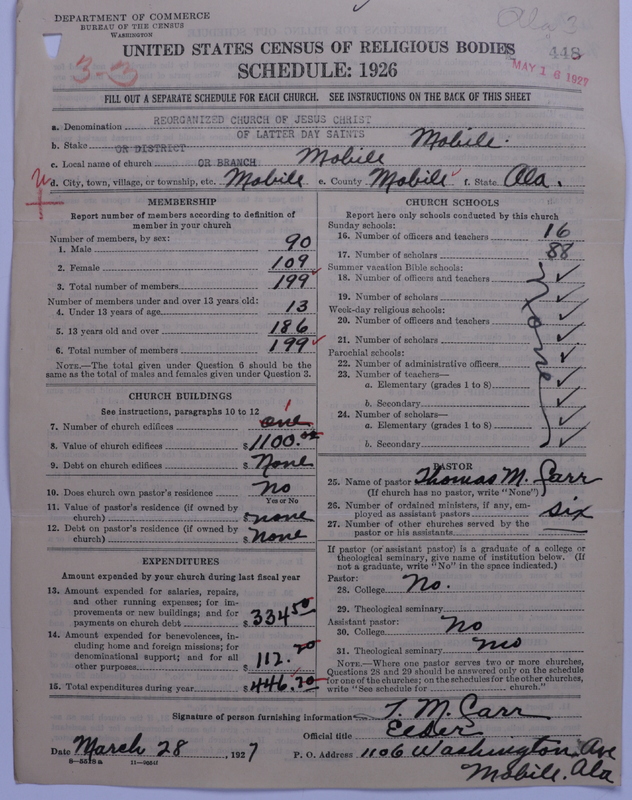 DEPARTMENT OF COMMERCE
BUREAU OF THE CENSUS
WASHINGTON
Ala 3
448
MAY 16 1927
3-3
UNITED STATES CENSUS OF RELIGIOUS BODIES
SCHEDULE: 1926
FILL OUT A SEPARATE SCHEDULE FOR EACH CHURCH. SEE INSTRUCTIONS ON THE BACK OF THIS SHEET
REORGANIZED CHURCH OF JESUS CHRIST
a. Denomination
OF LATTER DAY SAINTS
b. Stake OR DISTRICT Mobile.
c. Local name of church OR BRANCH Mobile
d. City, town, village, or township, etc. Mobile e. County Mobile f. State Ala.
MEMBERSHIP
Report number of members according to definition of
member in your church
Number of members, by sex:
1. Male 90
2. Female 109
3. Total number of members 199
Number of members under and over 13 years old:
4. Under 13 years of age 13
5. 13 years old and over 186
6. Total number of members 199
NOTE.—The total given under Question 6 should be the
same as the total of males and females given under Question 3.
CHURCH BUILDINGS
See instructions, paragraphs 10 to 12
1
7. Number of church edifices one
8. Value of church edifices $1100.00
9. Debt on church edifices $None
10. Does church own pastor's residence No
Yes or No
11. Value of pastor's residence (if owned by
church) $none
12. Debt on pastor's residence (if owned by
church) $None
EXPENDITURES
Amount expended by your church during last fiscal year
13. Amount expended for salaries, repairs,
and other running expenses; for im-
provements or new buildings; and for
payments on church debt $334.50
14. Amount expended for benevolences, in-
cluding home and foreign missions; for
denominational support; and for all
other purposes $112.20
15. Total expenditures during year $446.70
CHURCH SCHOOLS
Report here only schools conducted by this church
Sunday schools:
16. Number of officers and teachers 16
17. Number of scholars 88
Summer vacation Bible schools:
18. Number of officers and teachers
19. Number of scholars
Week-day religious schools:
20. Number of officers and teachers
21. Number of scholars
None
Parochial schools:
22. Number of administrative officers
23. Number of teachers—
a. Elementary (grades 1 to 8)
b. Secondary
24. Number of scholars—
a. Elementary (grades 1 to 8)
b. Secondary
PASTOR
25. Name of pastor Thomas M. Carr
(If church has no pastor, write "None")
26. Number of ordained ministers, if any, em-
ployed as assistant pastors six
27. Number of other churches served by the
pastor or his assistants
If pastor (or assistant pastor) is a graduate of a college or
theological seminary, give name of institution below. (If
not a graduate, write "No" in the space indicated.)
Pastor:
28. College No.
29. Theological seminary
Assistant pastor:
30. College No
31. Theological seminary no
NOTE.—Where one pastor serves two or more churches,
Questions 28 and 29 should be answered only on the schedule
for one of the churches; on the schedules for the other churches,
write "See schedule for church."
Signature of person furnishing information T. M. Carr
Official title Elder
Date March 28, 1927 P. O. Address 1106 Washington Ave
8—5528a 11—9554f Mobile. Ala